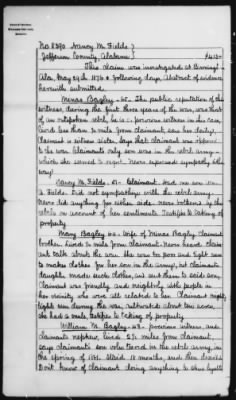 No 8390. Nancy M. Fields
Jefferson County, Alabama
This claim was investigated at Birmingh
Ala, May 29th 1876 & following days. Abstract of evidence
herewith submitted.
Minas Bagley - 65 - The public reputation of this
witness, during the first three years of the war, was that
of an outspoken rebel, he is a previous witness in this case,
lived less than ½ mile from claimant, saw her daily,
Claimant is witness sister, says that claimant was opposed
to the war. Claimants only son was in the rebel army
which she seemed to regret. Never expressed sympathy either
way.
Nancy M. Fields. Claimant. Had one son
Fields. Did not sympathize with the rebel army.
Never did anything for either side. Never bothered by the
rebels on account of her sentiments. Testifies to taking of
property.
Mary Bagley 60. Wife of Minas Bagley Claimant
brother. Lived ½ mile from claimant. Never heard Claim-
ant talk about the war. She was too poor and tight run
to make clothes for her son in the army, but claimants
daughter made such clothes, and sent them to said son.
Claimant was friendly and neighborly with people in
her vicinity who were all rebels on her. Claimant
run during the war, cultivated about ten acres,
she had a mule, testifies to taking of property.
William M. Bagley - previous witness and
Claimants nephew, lived 2½ miles from claimant,
says claimant's son volunteered in the rebel army, in
the spring of 1861. Staid 12 months, and then
Don't know of claimant doing anything to show loyalty